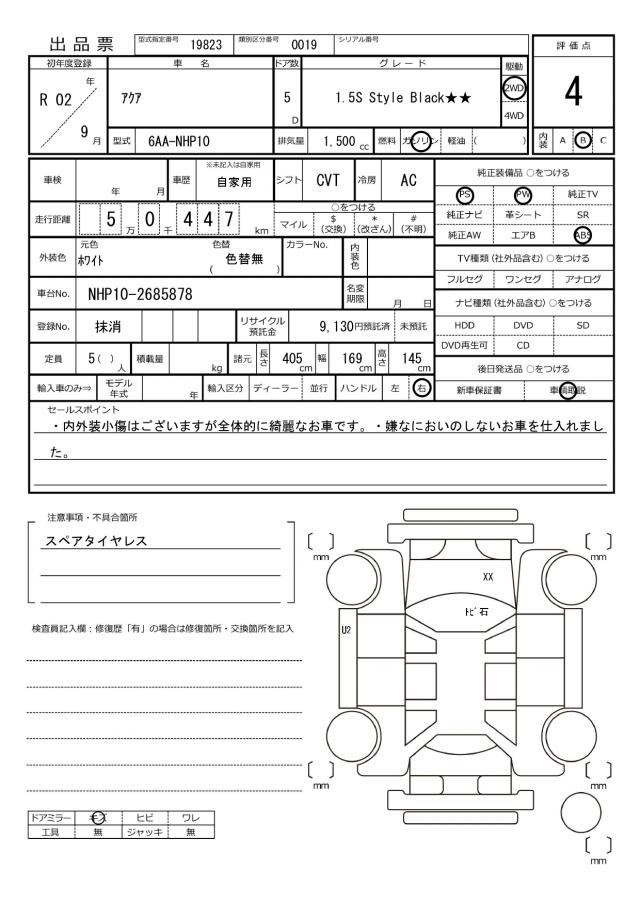 出品票 型式指定番号 19823 類別区分番号 0019 シリアル番号
評価点
4
初年度登録 車名 ドア数 グレード 駆動
R 02 年 9 月 アクア 5 D 1.5S Style Black★★ 2WD 4WD
型式 6AA-NHP10 排気量 1,500 cc 燃料 ガソリン 軽油 ( ) 内装 A B C
車検 年 月 車歴 ※未記入は自家用 自家用 シフト CVT 冷房 AC
走行距離 5 万 0 千 4 4 7 km ○をつける マイル $ (交換) * (改ざん) # (不明)
外装色 元色 ホワイト 色替 ( 色替無 ) カラーNo. 内装色
車台No. NHP10-2685878 名変期限 月 日
登録No. 抹消 リサイクル預託金 9,130円預託済 未預託
定員 5 ( ) 人 積載量 kg 諸元 長さ 405 cm 幅 169 cm 高さ 145 cm
輸入車のみ⇒ モデル年式 年 輸入区分 ディーラー 並行 ハンドル 左 右
純正装備品 ○をつける
PS PW 純正TV
純正ナビ 革シート SR
純正AW エアB ABS
TV種類 (社外品含む) ○をつける
フルセグ ワンセグ アナログ
ナビ種類 (社外品含む) ○をつける
HDD DVD SD
DVD再生可 CD
後日発送品 ○をつける
新車保証書 車輌取説
セールスポイント
・内外装小傷はございますが全体的に綺麗なお車です。・嫌なにおいのしないお車を仕入れまし
た。
注意事項・不具合箇所
スペアタイヤレス
検査員記入欄：修復歴「有」の場合は修復箇所・交換箇所を記入
mm mm
XX
トビ石
U2
mm mm
mm
ドアミラー キズ ヒビ ワレ
工具 無 ジャッキ 無